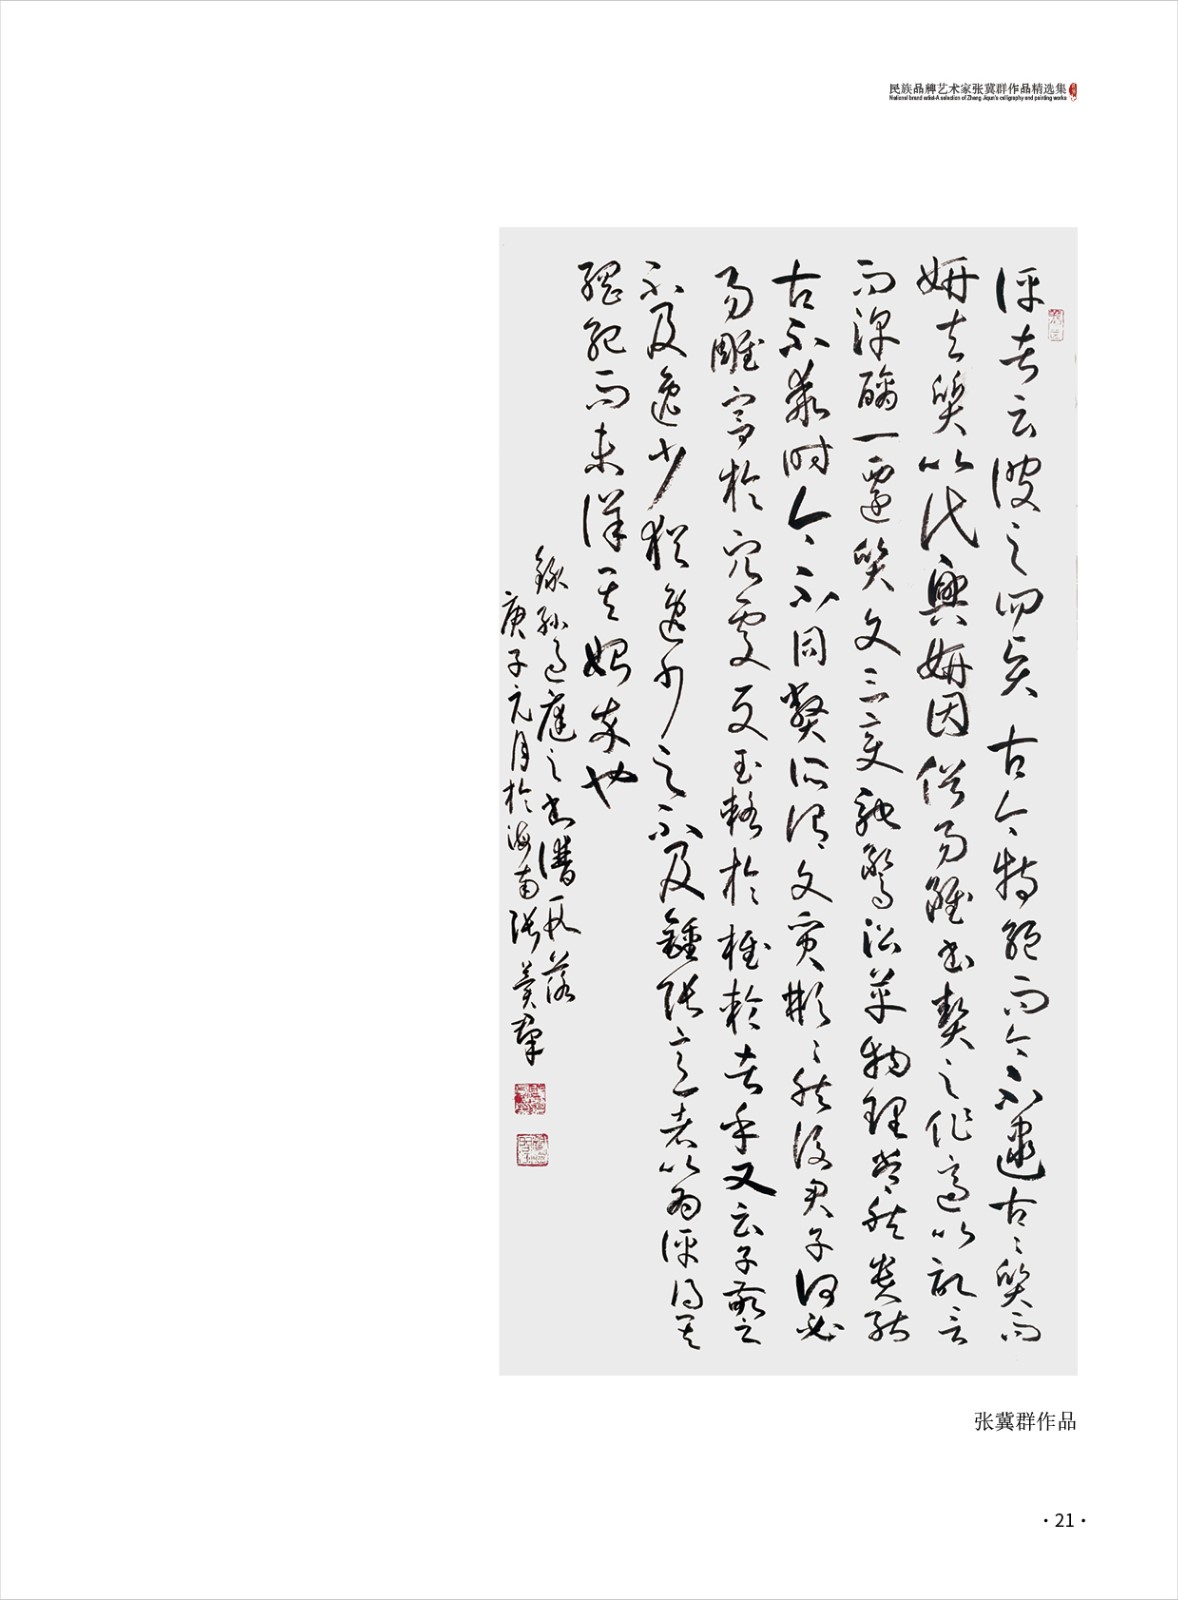 民族品牌艺术家张冀群作品精选集
National brand artist-A selection of Zhang Jiqun's calligraphy and painting works
評者云彼之四賢古今特絕而今不逮古々質而
妍夫質以代興妍因俗易雖書契之作適以記言
而淳醨一遷質文三變馳騖沿革物理常然貴能
古不乖時今不同弊所謂文質彬々然後君子何必
易雕宮於穴處反玉輅於椎輪者乎又云子敬之
不及逸少猶逸少之不及鍾張意者以為評得其
綱紀而未詳其始卒也
錄孫過庭之書譜一段落
庚子元月於海南張冀群
张冀群作品
·21·